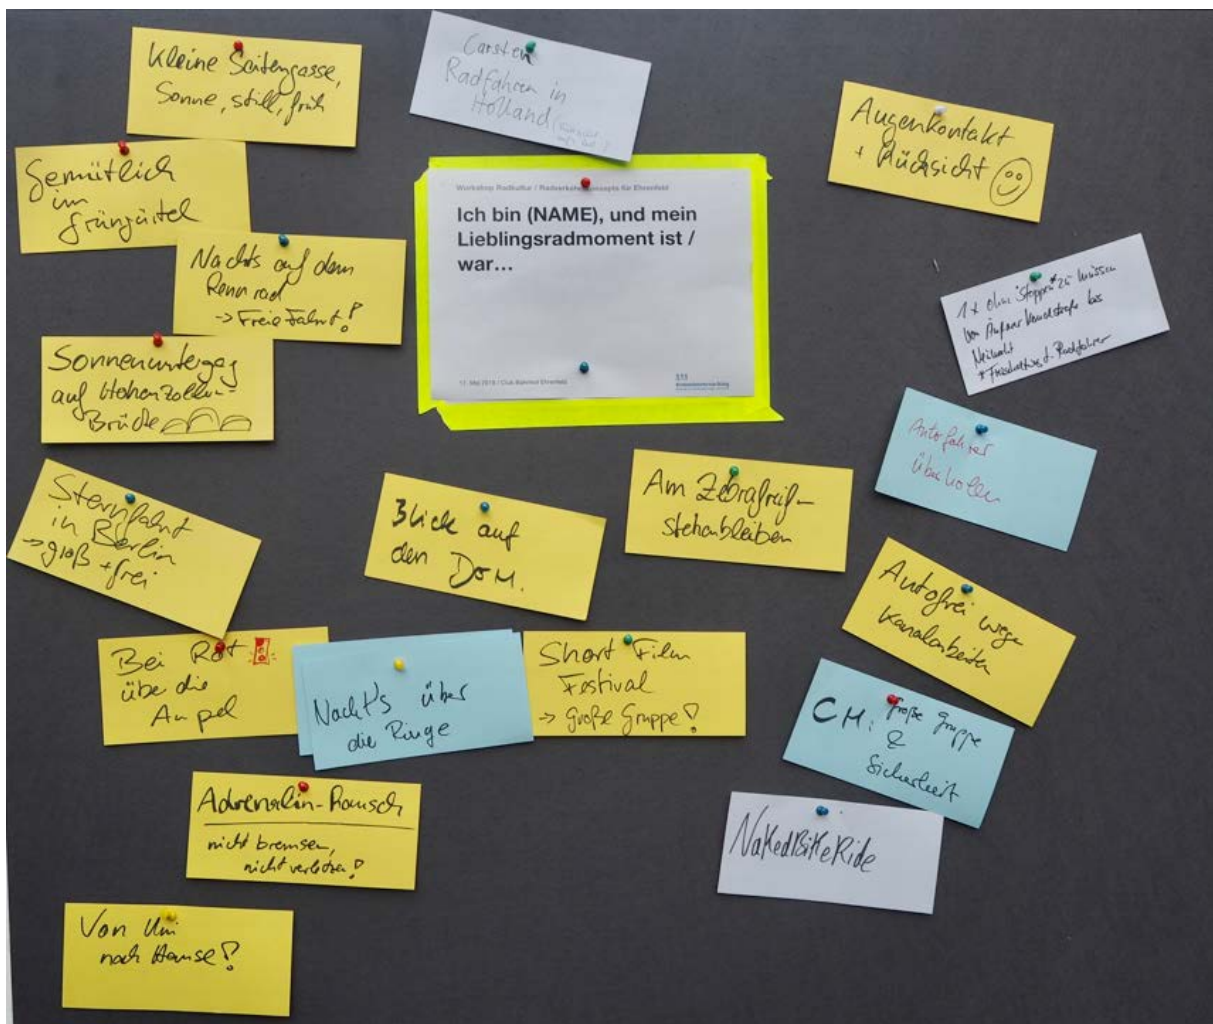 Kleine Seitengasse,
Sonne, still, früh
Carsten
Radfahren in
Holland
Augenkontakt
+ Rücksicht
Gemütlich
im
Grüngürtel
Workshop Radkultur / Radverkehrskonzepte für Ehrenfeld
Ich bin (NAME), und mein
Lieblingsradmoment ist /
war...
Nachts auf dem
Rennrad
-> Freie Fahrt!
1x ohne "Stoppen"* zu müssen
von
bis
Neumarkt
Sonnenuntergang
auf Hohenzollern-
Brücke
17. Mai 2018 / Club Bahnhof Ehrenfeld
Autofahrer
überholen
Sternfahrt
in Berlin
-> groß + frei
Blick auf
den Dom.
Am Zebrastreifen
stehenbleiben
Autofrei wegen
Kanalarbeiten
Bei Rot
über die
Ampel
Nacht's über
die Ringe
Short Film
Festival
-> Große Gruppe!
CM: Große Gruppe
&
Sicherheit
Adrenalin-Rausch
nicht bremsen,
nicht verletzen!
NakedBikeRide
Von Uni
nach Hause!